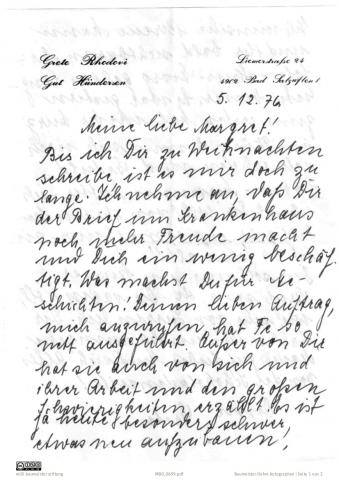 Grete Rhodovi
Gut Hündersen
Liemerstraße 24
4902 Bad Salzuflen 1
5. 12. 76
Meine liebe Margret!
Bis ich Dir zu Weihnachten
schreibe ist es mir doch zu
lange. Ich nehme an, daß Dir
der Brief im Krankenhaus
noch mehr Freude macht
und Dich ein wenig beschäf-
tigt. Was machst Du für Ge-
schichten! Deinen lieben Auftrag,
mich anzurufen hat Fe so
nett ausgeführt. Außer von Dir
hat sie auch von sich und
ihrer Arbeit und den großen
Schwierigkeiten erzählt. Es ist
ja heute besonders schwer,
etwas neu aufzubauen,
willi baumeister stiftung
Baumeister Rehm Autographen | Seite 1 von 2